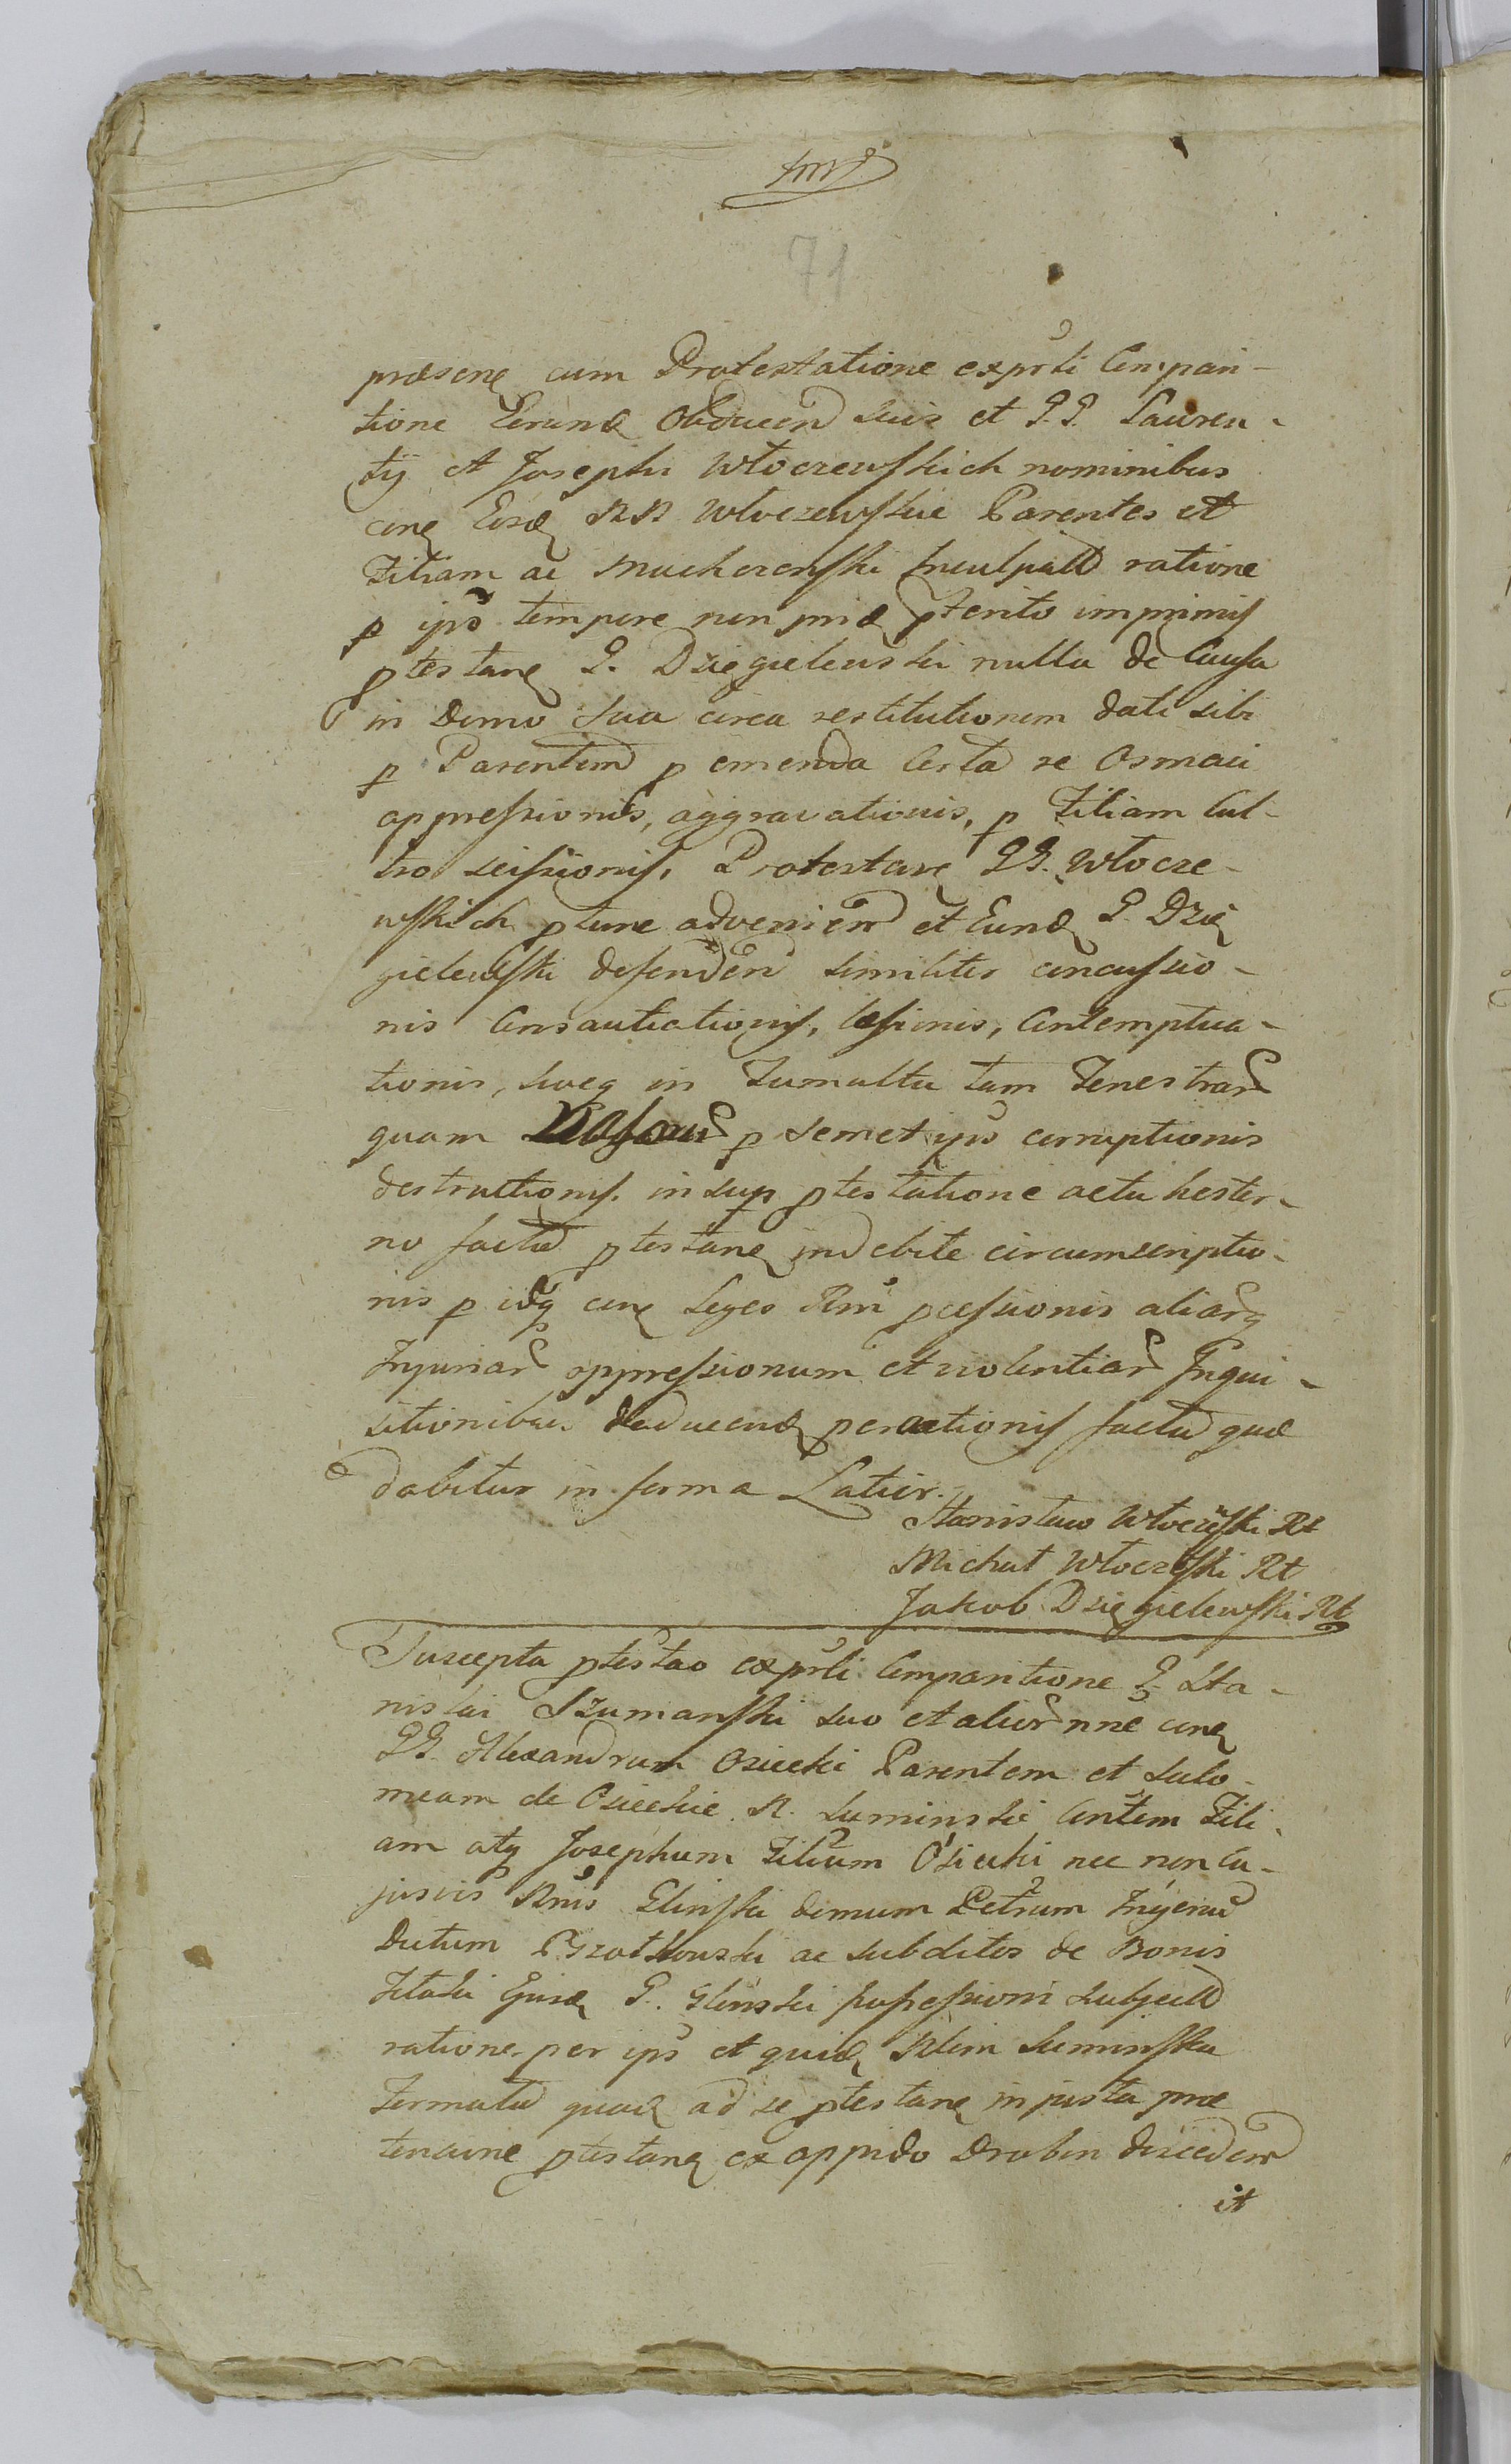 71
præsenę cum Protestatione exprsli Compari-
tione Eorund Obducend suis et P.P. Lauren-
tij et Josephi Włoczewskich nominibus
conę Eosd NN Włoczewskie Parentes et
Filiam ac Mucharowski Inculpatt ratione
p ipso tempore non prid pterito imprimis
ptestanę P. Dzięgielewski nulla de Causa
in Domo sua circa restitutionem dati sibi
p Parentem p emenda Certa re Osmaci
oppressionis, aggravationis, p Filiam Cul-
tro scissionis, Protestanę PP. Włocze-
wskich ptunc advenien et Eund P. Dzię
gielewski defenden similiter concussio-
nis Consauciationis, læsionis, Contemptua-
tionis, suoq in Tumultu tam Fenestrar
quam p semet ipso corruptionis
destructionis. insup ptestatione actu hester-
no facta ptestanę indebite circumscriptio-
nis p idq conę Leges Rni pcessionis aliarq
Injuriar oppressionum et violentiar Inqui-
sitionibus deducend peractionis facta quæ
dabitur in forma Latior.
Stanisław Włoczewski Rt
Michał Włoczewski Rt
Jakob Dzięgielewski Rt
Suscepta ptestao exprsli Comparitione P. Sta-
nislai Szumanski suo et alior nne conę
PP. Alexandrum Osiecki Parentem et Salo-
meam de Osieckie N. Luminski Contem Fili-
am atq Josephum Filium Osiecki nec non Cu-
jusvis Nnis Glinski demum Petrum Ingenu
Dutum ac subditos de Bonis
Ejusd P. Glinski possessioni subject
ratione per ips et quid Nlim Luminska
Formata quad ad se ptestanę injusta præ
tensione ptestanę ex oppido Drobin disceden
it